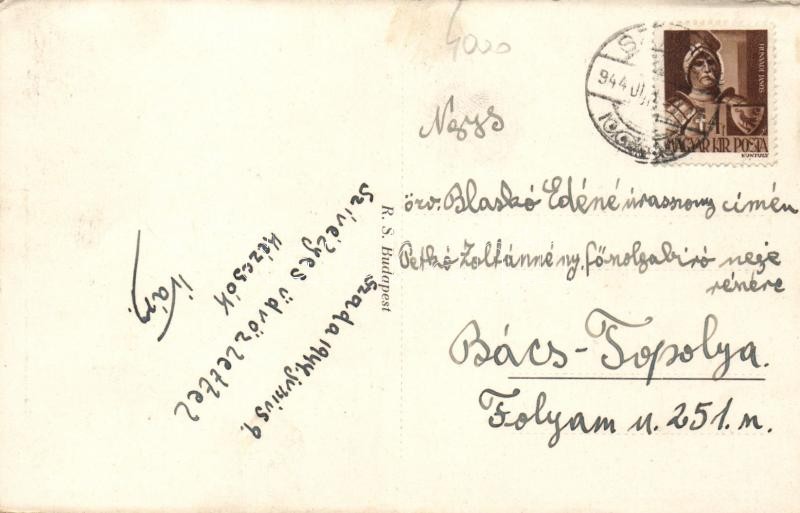 Szada 1944 június 9.
Szívélyes üdvözlettel
Kézcsók
Iván
R. S. Budapest
4000
944
HUNYADI JÁNOS
MAGYAR KIR. POSTA
Nags
özv. Blaskó Edéné úrasszony címén
Petkó Zoltánné ny. főszolgabíró neje
részére
Bács-Topolya.
Folyam u. 251. sz.